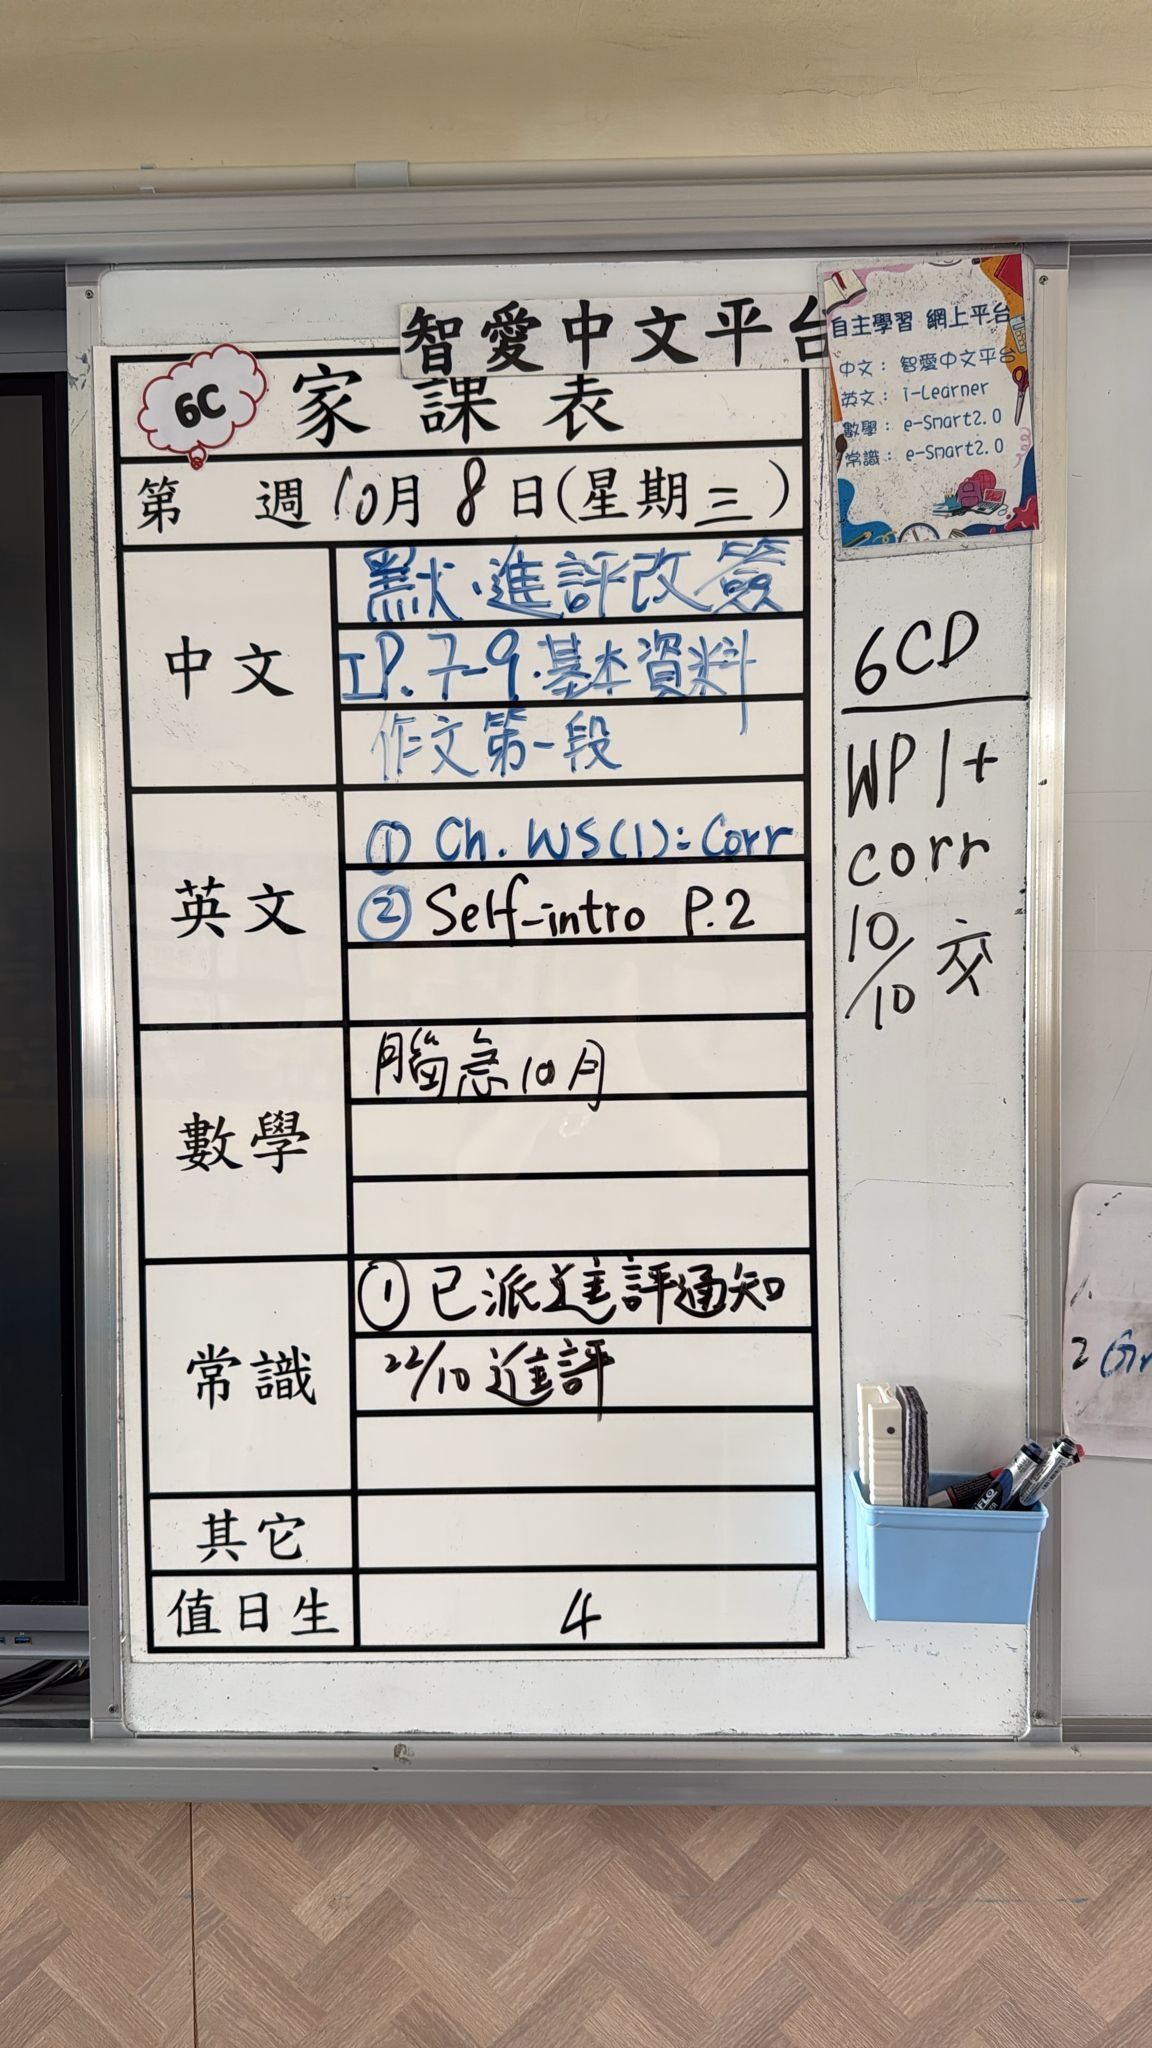 智愛中文平台
6C 家課表
第 週 10月 8日(星期三)
中文
默·進評改簽
工P.7-9·基本資料
作文第一段
英文
① Ch. WS(1): Corr
② Self-intro P.2
數學
腦急10月
常識
① 已派進評通知
22/10 進評
其它
值日生
4
自主學習 網上平台
中文：智愛中文平台
英文：i-Learner
數學：e-Smart2.0
常識：e-Smart2.0
6CD
WP1+
corr
10/10 交